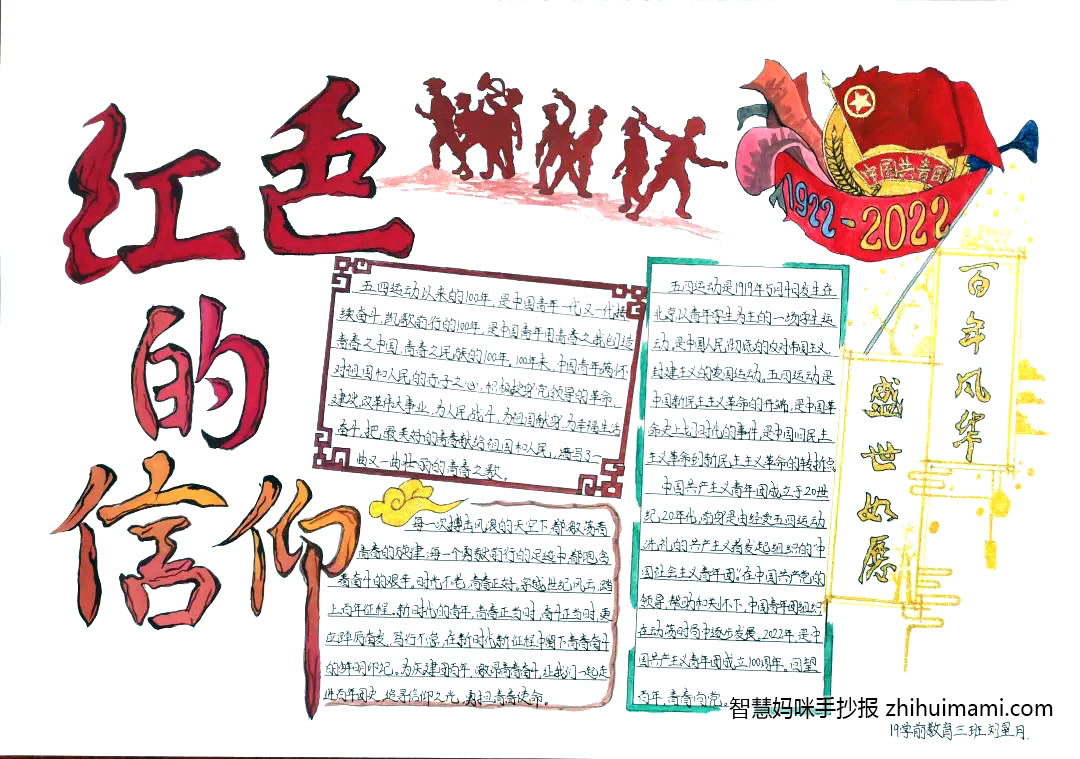 红色
的
信仰
中国共青团
1922-2022
百年风华
盛世如愿
五四运动以来的100年，是中国青年一代又一代接
续奋斗，凯歌前行的100年，是中国青年用青春之我创造
青春之中国，青春之民族的100年。100年来，中国青年满怀
对祖国和人民的赤子之心，积极投身党领导的革命、
建设、改革伟大事业，为人民战斗，为祖国献身，为幸福生活
奋斗，把最美好的青春献给祖国和人民，谱写了一
曲又一曲壮丽的青春之歌。
每一次搏击风浪的天空下都激荡着
青春的旋律；每一个勇毅前行的足迹中都饱含
着奋斗的艰辛。时代不老，青春正好。穿越世纪风云，踏
上百年征程。新时代的青年，青春正当时，奋斗正当时，更
应踔厉奋发，笃行不怠，在新时代新征程中留下青春奋斗
的鲜明印记。为庆建团百年，激昂青春奋斗，让我们一起走
进百年团史，追寻信仰之光，勇担青春使命。
五四运动是1919年5月4日发生在
北京以青年学生为主的一场学生运
动，是中国人民彻底的反对帝国主义、
封建主义的爱国运动。五四运动是
中国新民主主义革命的开端，是中国革
命史上划时代的事件，是中国旧民主
主义革命到新民主主义革命的转折点
中国共产主义青年团成立于20世
纪20年代，前身是由经受五四运动
洗礼的共产主义者发起组织的“中
国社会主义青年团”。在中国共产党的
领导、帮助和关怀下，中国青年团组织
在动荡时局中逐步发展。2022年，是中
国共产主义青年团成立100周年。回望
百年，青春向党。
智慧妈咪手抄报 zhihuimami.com
19学前教育三班刘星月